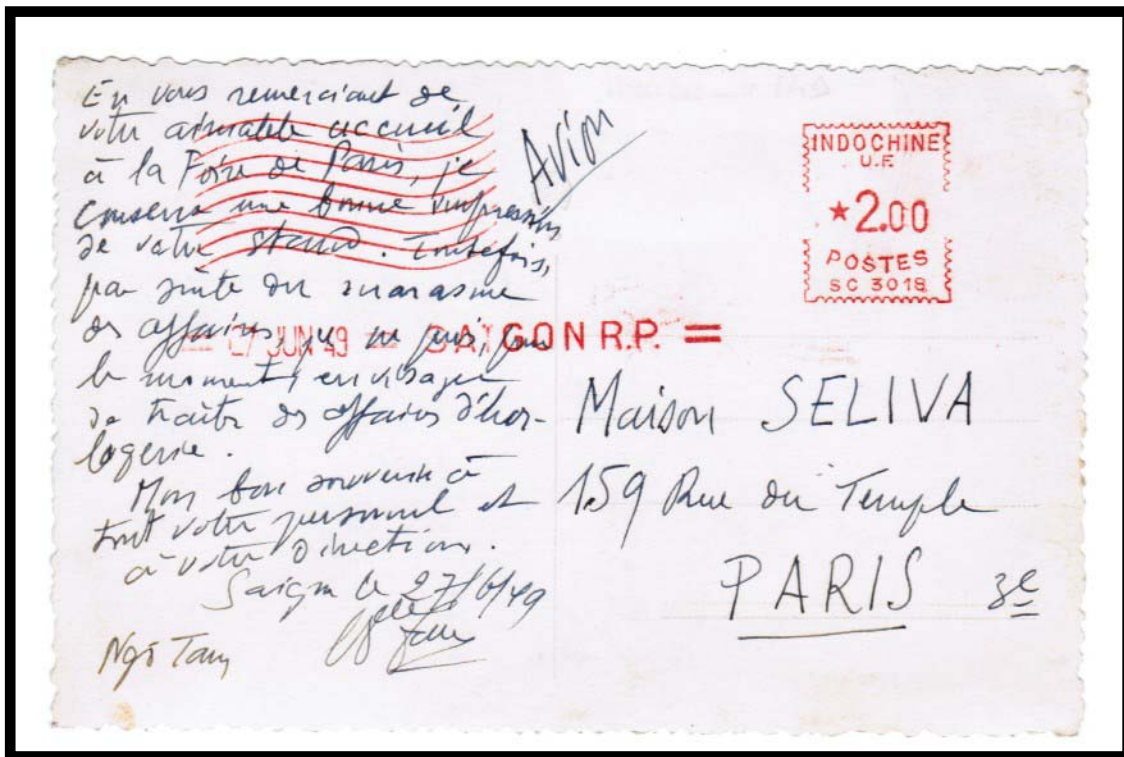 En vous remerciant de
votre aimable accueil
à la Foire de Paris, je
conserve une bonne impression
de votre stand. Toutefois,
par suite du marasme
des affaires, je ne puis, pour
le moment, envisager
de traiter des affaires d'hor-
logerie.
Mon bon souvenir à
tout votre personnel et
à votre Direction.
Saigon le 27/6/49
Ngô Tam
Avion
INDOCHINE
U.F.
★2.00
POSTES
SC 3018
27 JUN 49 — SAIGON R.P. =
Maison SELIVA
159 Rue du Temple
PARIS 3e